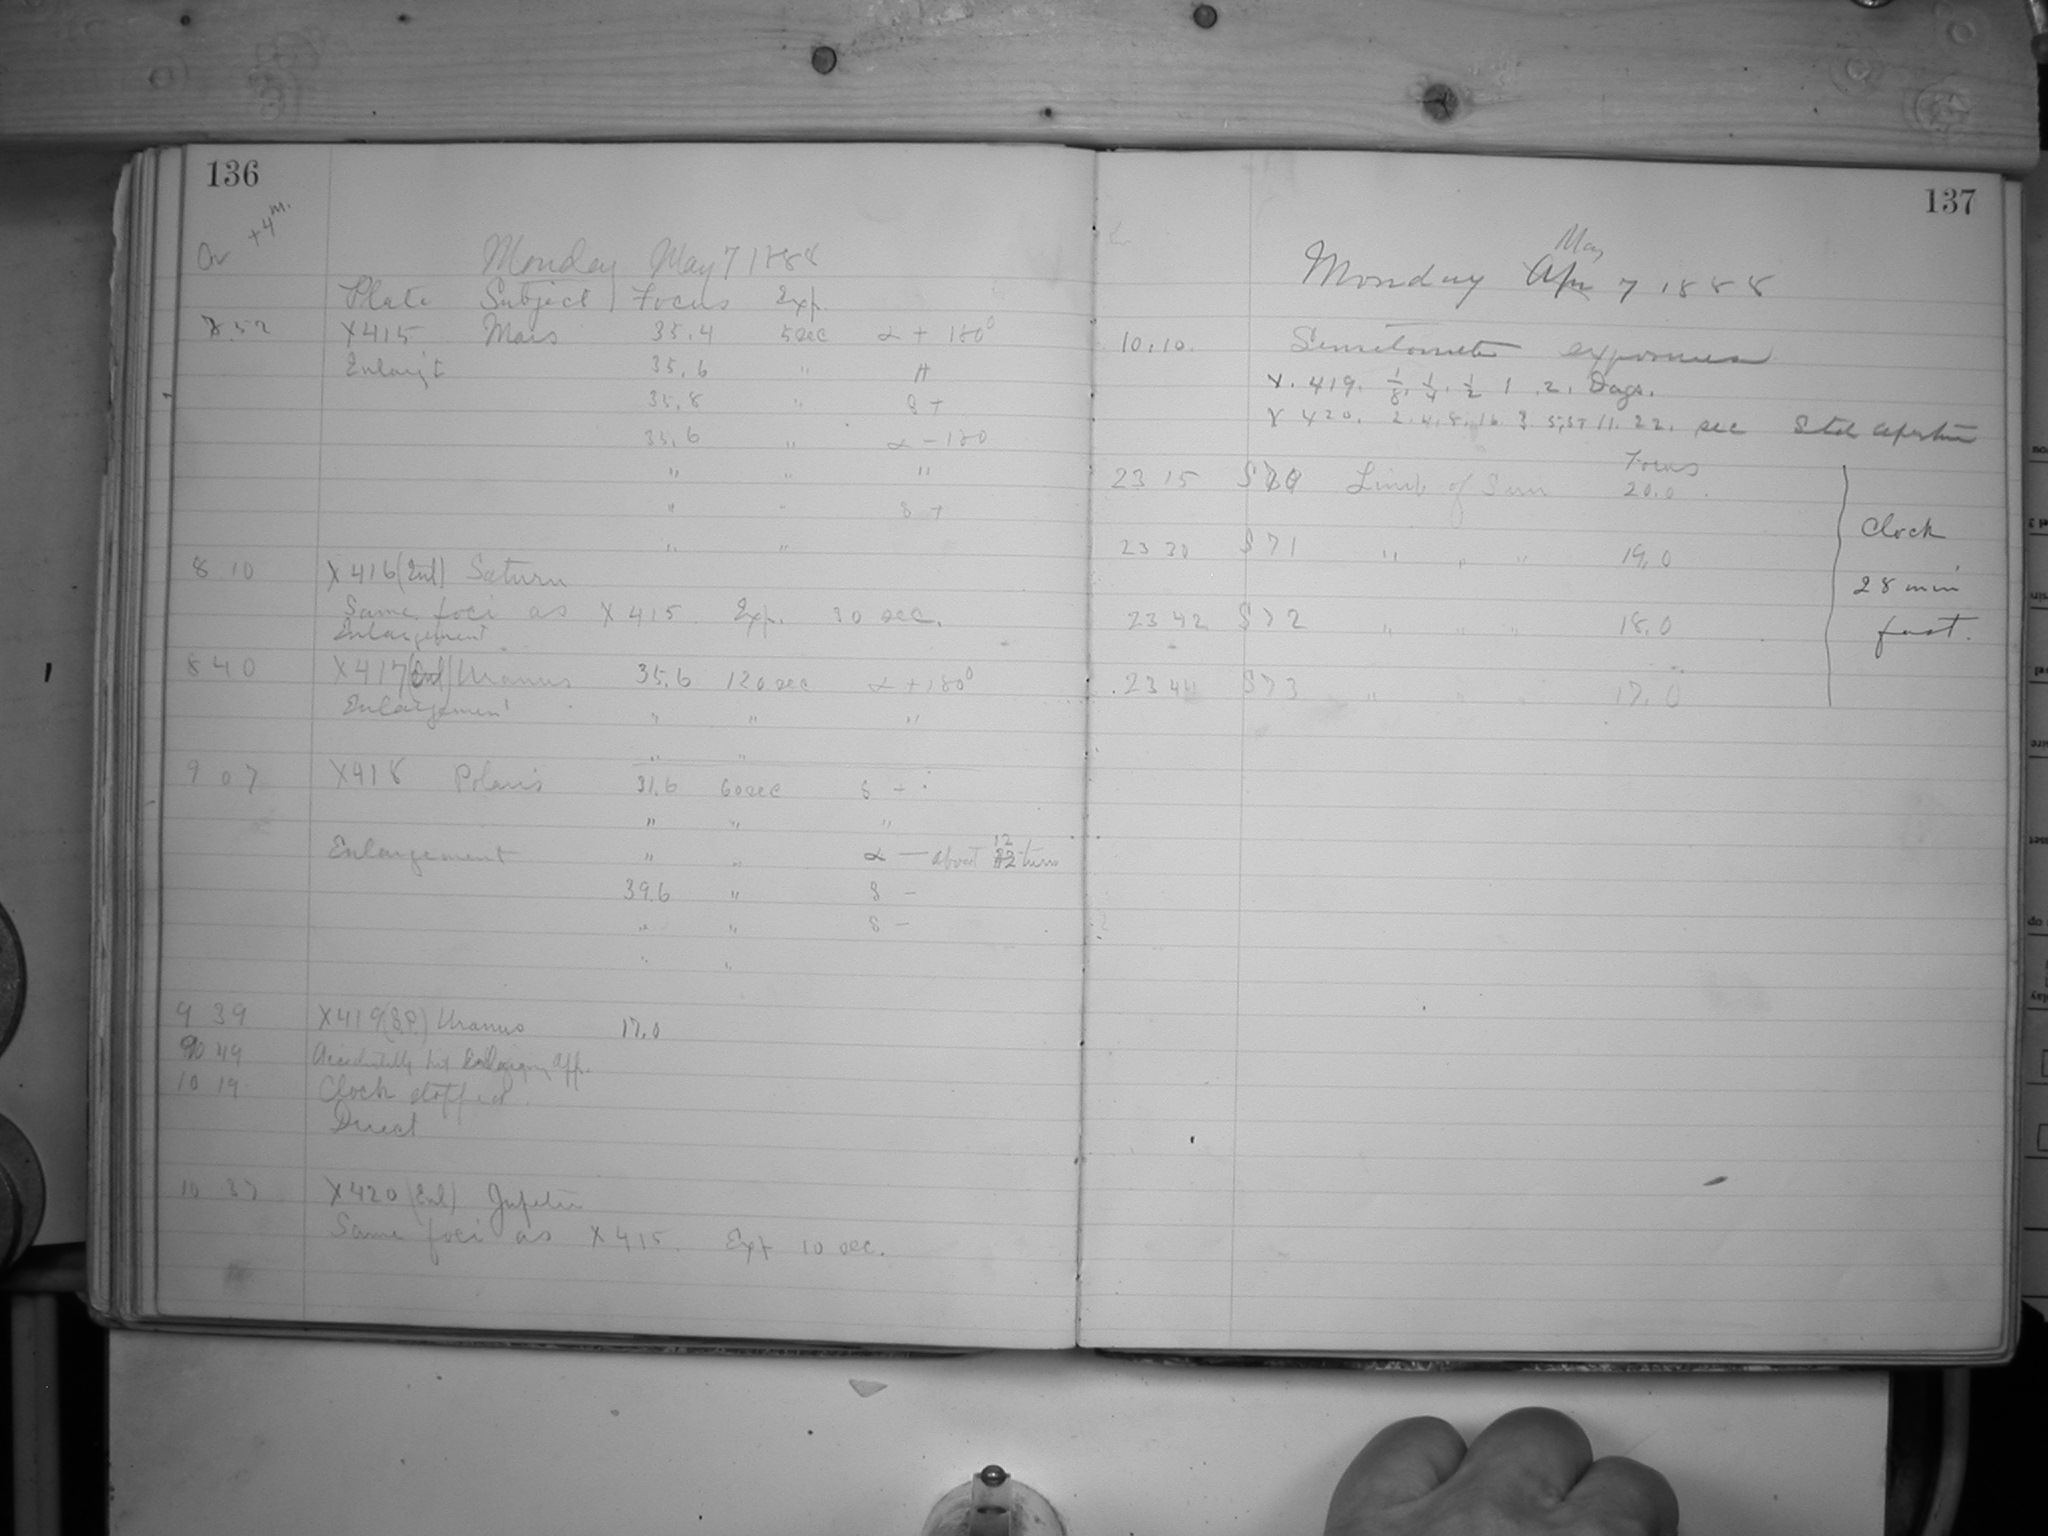 136
+4m.
Monday May 7 1888
Plate Subject Focus Exp.
7.52 X415 Mars 35.4 5sec α + 180°
35.6 " "
35.8 " δ +
35.6 " α - 180
" " "
" " δ +
" "
8 10 X416 (Enl) Saturn
Same foci as X415. Exp. 30 sec.
Enlargement
8 40 X417 (Enl) Uranus 35.6 120sec α + 180°
Enlargement " " "
" "
9 07 X418 Polaris 60sec δ +
" " "
Enlargement " " α — about 12 turns
39.6 " δ -
" " δ -
" "
9 39 X419 Uranus 17.0
49 Accidentally hit Enlarging App.
10 19 Clock stopped.
Direct
10 37 X420 (Enl) Jupiter
Same foci as X415. Exp 10 sec.
137
May
Monday Apr 7 1888
10.10. Sensitometer exposures
X. 419. 1/8. 1/4. 1/2 1 .2. Dags.
X 420. 2. 4. 8. 16. 11. 22. sec Std aperture
Focus
23 15 Limb of Sun 20.0
23 30 S71 " " " 19.0
23 42 S72 " " " 18.0
23 44 S73 " " " 17.0
Clock
28 min
fast.